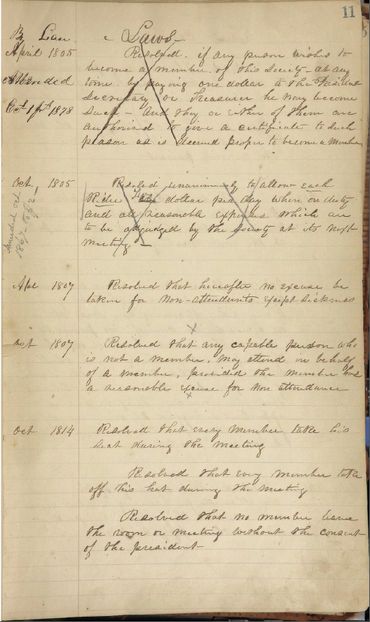 11
By Laws
April 1805 Resolved if any person wishes to
Amended become a member of this Society at any
time by paying one dollar to the
Oct 1878 Secretary or Treasurer he may become
Such - And they or either of them are
authorized to give a certificate to Such
person as is deemed proper to become a Member
Oct. 1805 Resolved unanimously to allow each
Rider dollar per day when on duty
and all reasonable expenses which are
to be adjudged by the Society at its next
Meeting
Apl 1807 Resolved that hereafter no excuse be
taken for Non-attendants except Sickness
Oct 1807 Resolved that any capable person who
is not a member, may attend on behalf
of a member, provided the member has
a reasonable excuse for Non attendance
Oct 1814 Resolved that every Member take his
Seat during the Meeting
Resolved that every Member take
off his hat during the Meeting
Resolved that no member leave
the room or meeting without the consent
of the President